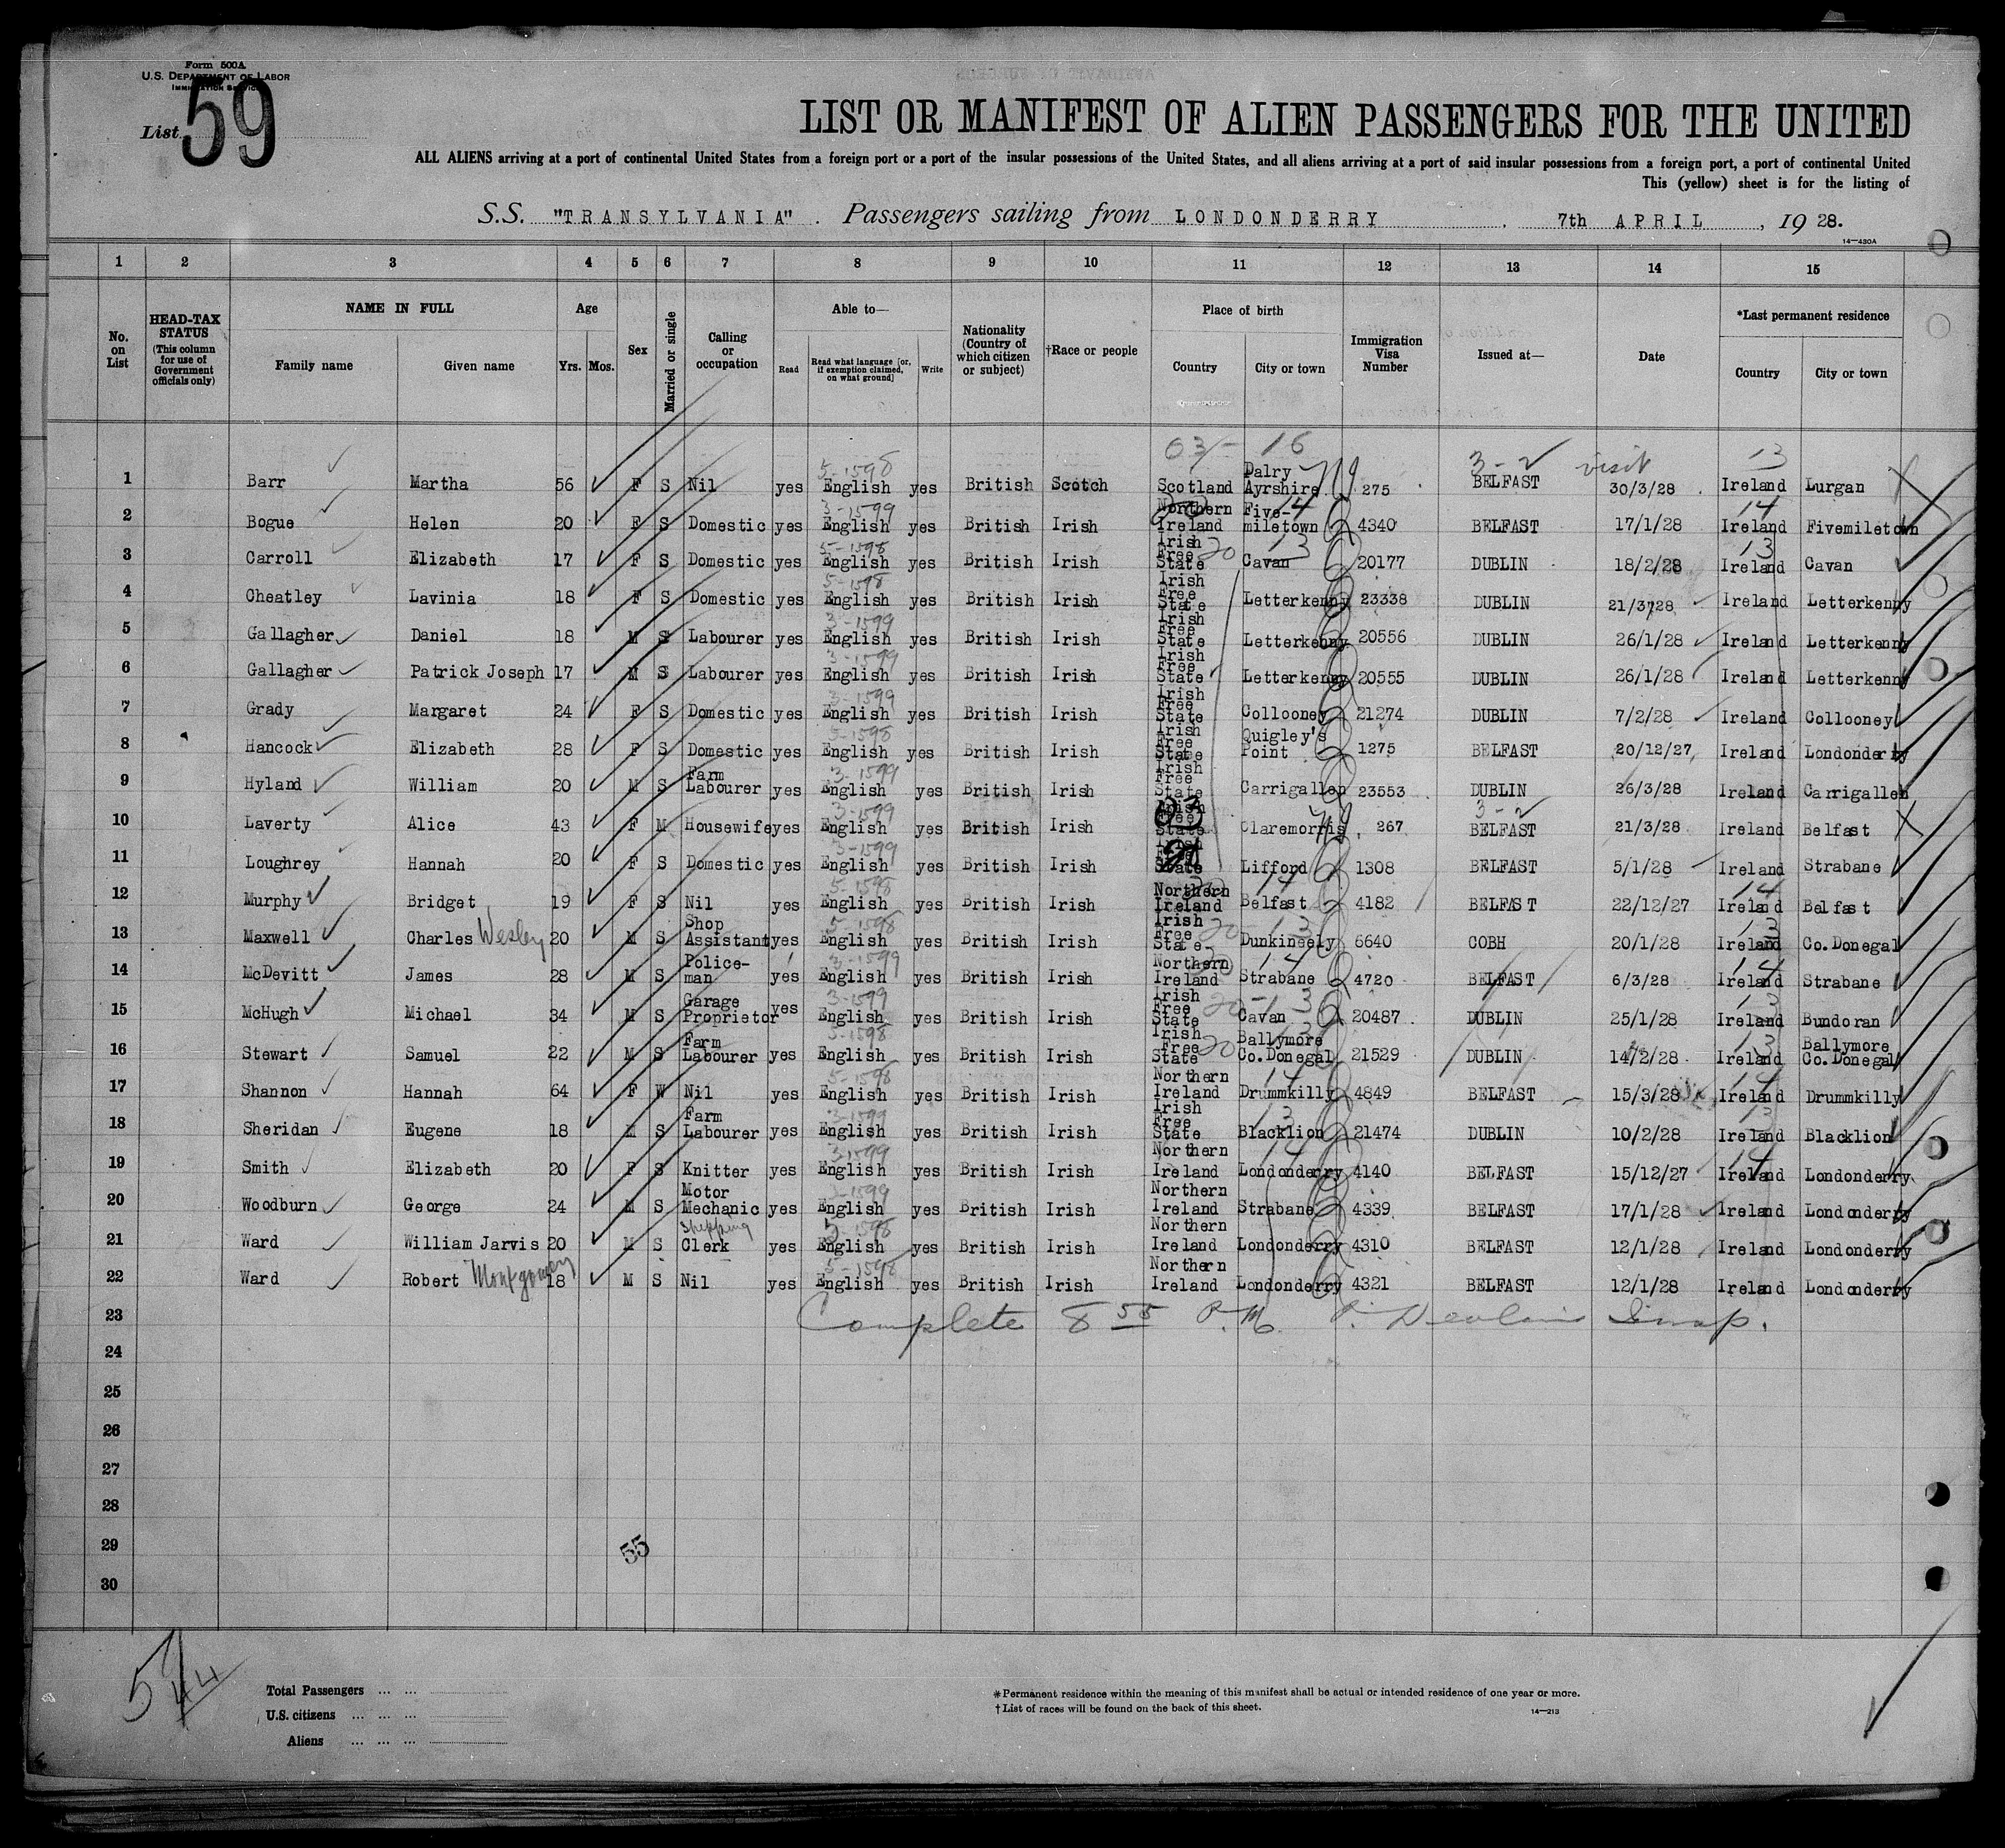 Form 500A
U.S. DEPARTMENT OF LABOR
IMMIGRATION SERVICE
List 59
LIST OR MANIFEST OF ALIEN PASSENGERS FOR THE UNITED
ALL ALIENS arriving at a port of continental United States from a foreign port or a port of the insular possessions of the United States, and all aliens arriving at a port of said insular possessions from a foreign port, a port of continental United
This (yellow) sheet is for the listing of
S.S. "TRANSYLVANIA". Passengers sailing from LONDONDERRY, 7th APRIL, 1928.
14—430A
1 2 3 4 5 6 7 8 9 10 11 12 13 14 15
No. on List
HEAD-TAX STATUS (This column for use of Government officials only)
NAME IN FULL Family name Given name
Age Yrs. Mos.
Sex
Married or single
Calling or occupation
Able to— Read Read what language [or, if exemption claimed, on what ground] Write
Nationality (Country of which citizen or subject)
†Race or people
Place of birth Country City or town
Immigration Visa Number
Issued at—
Date
*Last permanent residence Country City or town
03 - 16 3-2 visit 13
1 Barr Martha 56 F S Nil yes 5-1598 English yes British Scotch Scotland Dalry Ayrshire 275 BELFAST 30/3/28 Ireland Lurgan
2 Bogue Helen 20 F S Domestic yes 3-1599 English yes British Irish Northern Ireland Five-miletown 14 4340 BELFAST 17/1/28 14 Ireland Fivemiletown
3 Carroll Elizabeth 17 F S Domestic yes 5-1598 English yes British Irish Irish Free State 20 13 Cavan 20177 DUBLIN 18/2/28 13 Ireland Cavan
4 Cheatley Lavinia 18 F S Domestic yes 5-1598 English yes British Irish Irish Free State Letterkenny 23338 DUBLIN 21/3/28 Ireland Letterkenny
5 Gallagher Daniel 18 M S Labourer yes 3-1599 English yes British Irish Irish Free State Letterkenny 20556 DUBLIN 26/1/28 Ireland Letterkenny
6 Gallagher Patrick Joseph 17 M S Labourer yes 3-1599 English yes British Irish Irish Free State Letterkenny 20555 DUBLIN 26/1/28 Ireland Letterkenny
7 Grady Margaret 24 F S Domestic yes 3-1599 English yes British Irish Irish Free State Collooney 21274 DUBLIN 7/2/28 Ireland Collooney
8 Hancock Elizabeth 28 F S Domestic yes 5-1598 English yes British Irish Irish Free State Quigley's Point 1275 BELFAST 20/12/27 Ireland Londonderry
9 Hyland William 20 M S Farm Labourer yes 3-1599 English yes British Irish Irish Free State Carrigallen 23553 DUBLIN 26/3/28 Ireland Carrigallen
10 Laverty Alice 43 F M Housewife yes 3-1599 English yes British Irish 03 Irish Free State Claremorris 267 3-2 BELFAST 21/3/28 Ireland Belfast
11 Loughrey Hannah 20 F S Domestic yes 3-1599 English yes British Irish Irish Free State Lifford 1308 BELFAST 5/1/28 Ireland Strabane
12 Murphy Bridget 19 F S Nil yes 5-1598 English yes British Irish Northern Ireland 14 Belfast 4182 BELFAST 22/12/27 14 Ireland Belfast
13 Maxwell Charles Wesley 20 M S Shop Assistant yes 5-1598 English yes British Irish Irish Free State 20 13 Dunkineely 6640 COBH 20/1/28 13 Ireland Co.Donegal
14 McDevitt James 28 M S Police-man yes 3-1599 English yes British Irish Northern Ireland 20 14 Strabane 4720 BELFAST 6/3/28 14 Ireland Strabane
15 McHugh Michael 34 M S Garage Proprietor yes 3-1599 English yes British Irish Irish Free State 20 13 Cavan 20487 DUBLIN 25/1/28 13 Ireland Bundoran
16 Stewart Samuel 22 M S Farm Labourer yes 5-1598 English yes British Irish Irish Free State 20 13 Ballymore Co.Donegal 21529 DUBLIN 14/2/28 13 Ireland Ballymore Co.Donegal
17 Shannon Hannah 64 F W Nil yes 5-1598 English yes British Irish Northern Ireland 14 Drummkilly 4849 BELFAST 15/3/28 14 Ireland Drummkilly
18 Sheridan Eugene 18 M S Farm Labourer yes 3-1599 English yes British Irish Irish Free State 13 Blacklion 21474 DUBLIN 10/2/28 13 Ireland Blacklion
19 Smith Elizabeth 20 F S Knitter yes 3-1599 English yes British Irish Northern Ireland 14 Londonderry 4140 BELFAST 15/12/27 14 Ireland Londonderry
20 Woodburn George 24 M S Motor Mechanic yes 3-1599 English yes British Irish Northern Ireland Strabane 4339 BELFAST 17/1/28 Ireland Londonderry
21 Ward William Jarvis 20 M S Shipping Clerk yes 5-1598 English yes British Irish Northern Ireland Londonderry 4310 BELFAST 12/1/28 Ireland Londonderry
22 Ward Robert Montgomery 18 M S Nil yes 5-1598 English yes British Irish Northern Ireland Londonderry 4321 BELFAST 12/1/28 Ireland Londonderry
23 Complete 8 55 P.M. P. Insp.
24
25
26
27
28
29
55
30
Total Passengers ... ...
U.S. citizens ... ... ...
Aliens ... ... ...
*Permanent residence within the meaning of this manifest shall be actual or intended residence of one year or more.
†List of races will be found on the back of this sheet.
14—213